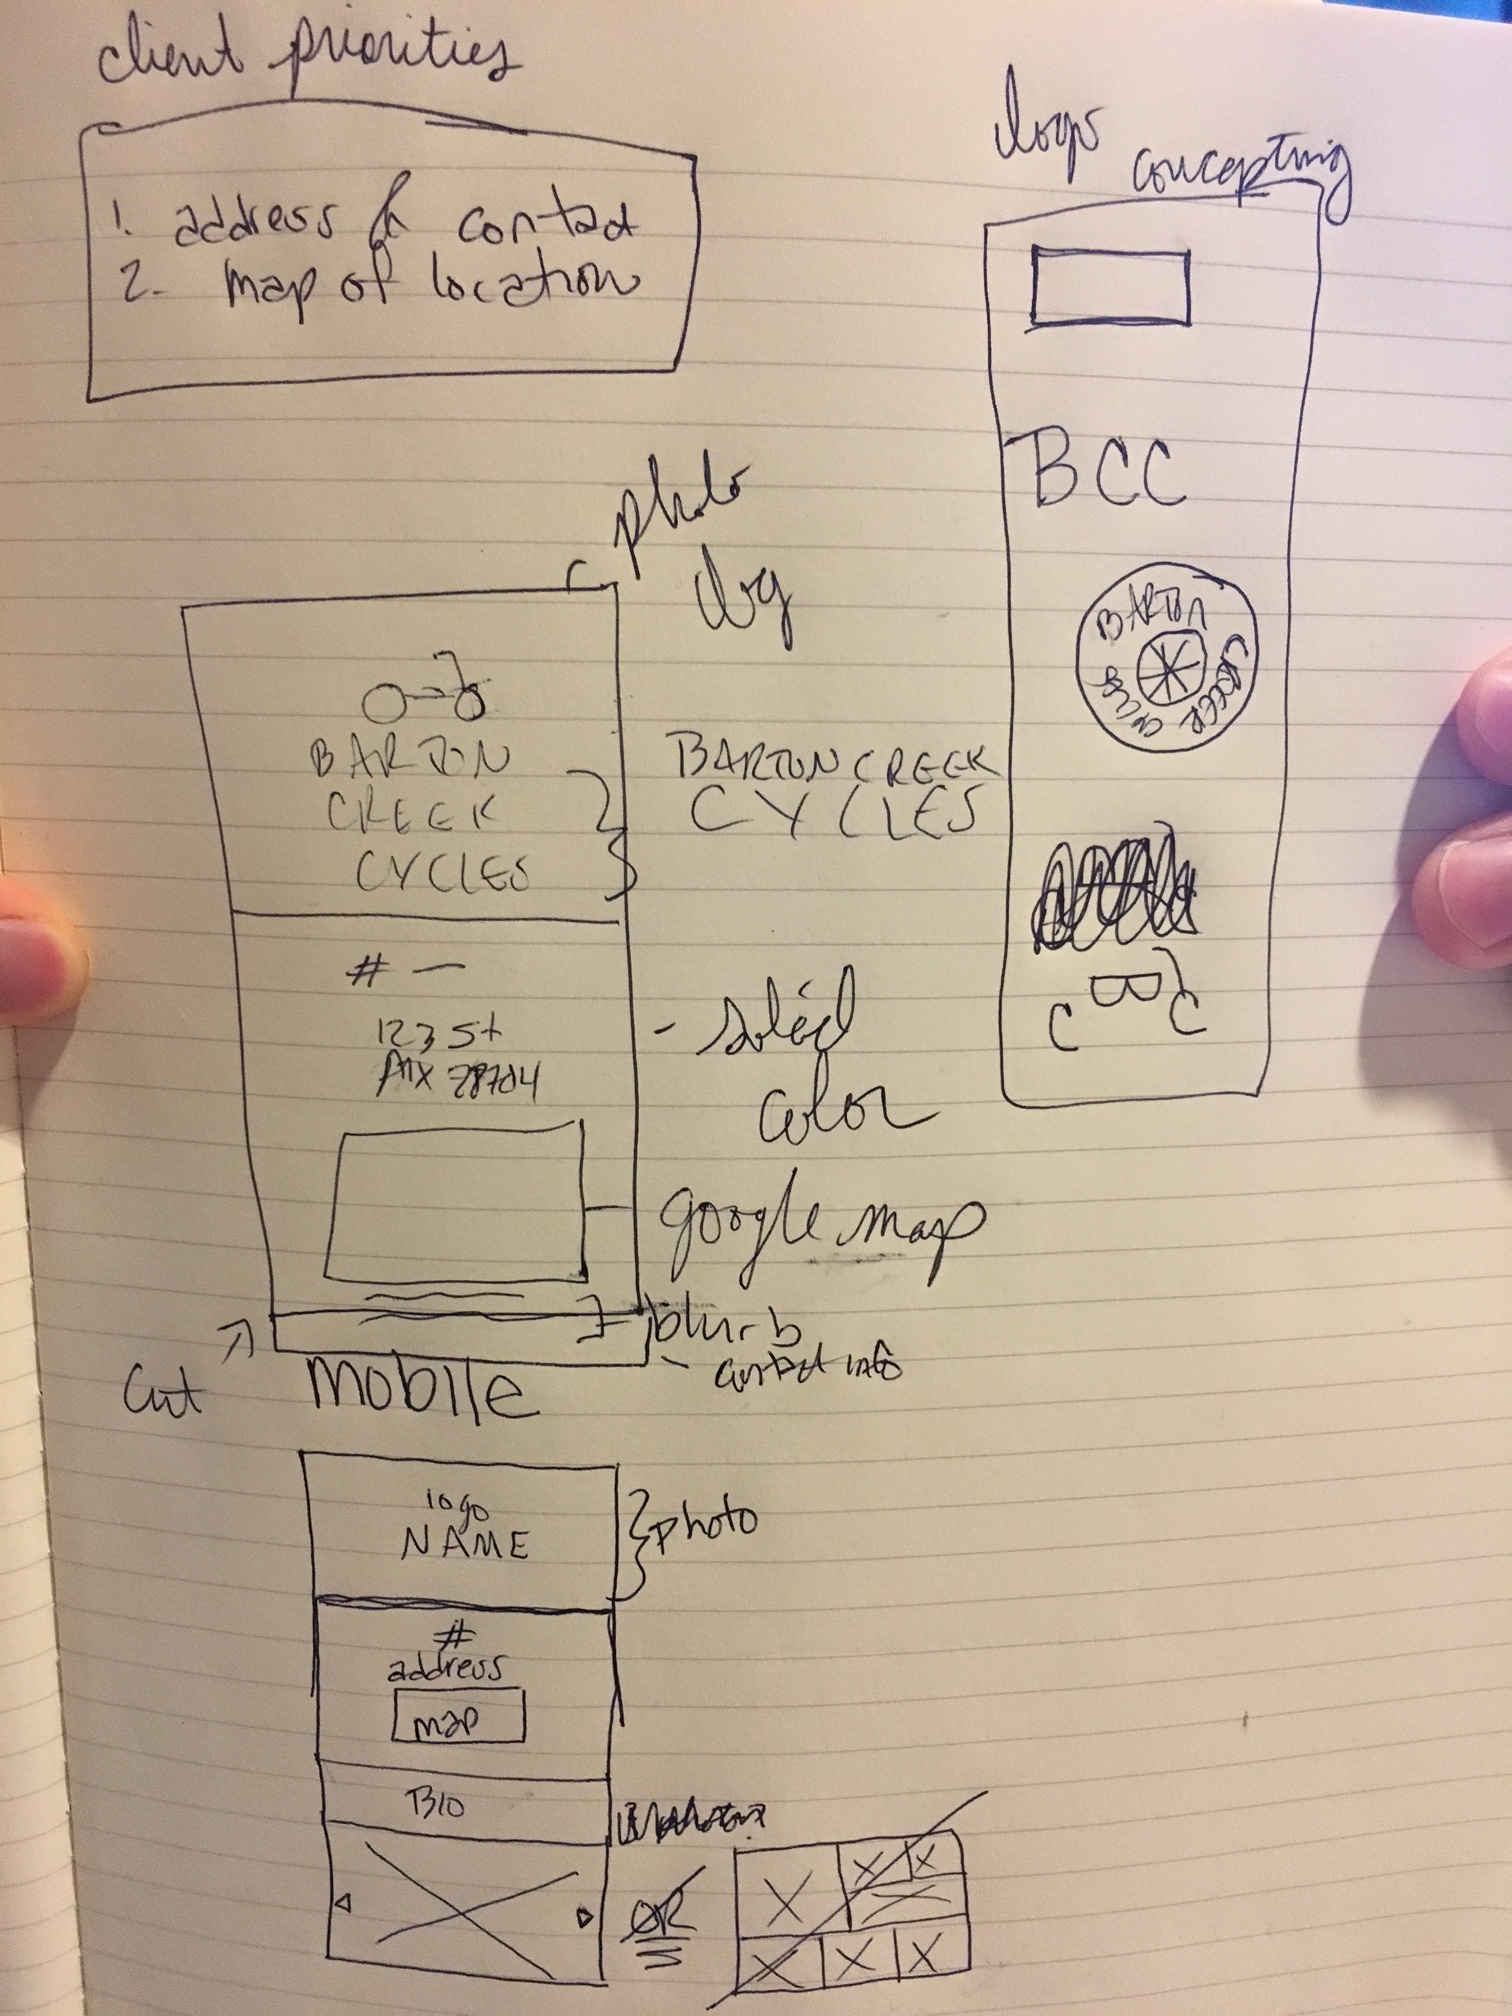 client priorities
1. address & contact
2. map of location
logo
concepting
BCC
BARTON CREEK CYCLES
C B C
photo
BARTON
CREEK
CYCLES
BARTON CREEK
CYCLES
# —
123 St
78704
- solid
color
google map
blurb
- contact info
Cut
mobile
logo
NAME
photo
#
address
map
BIO
OR